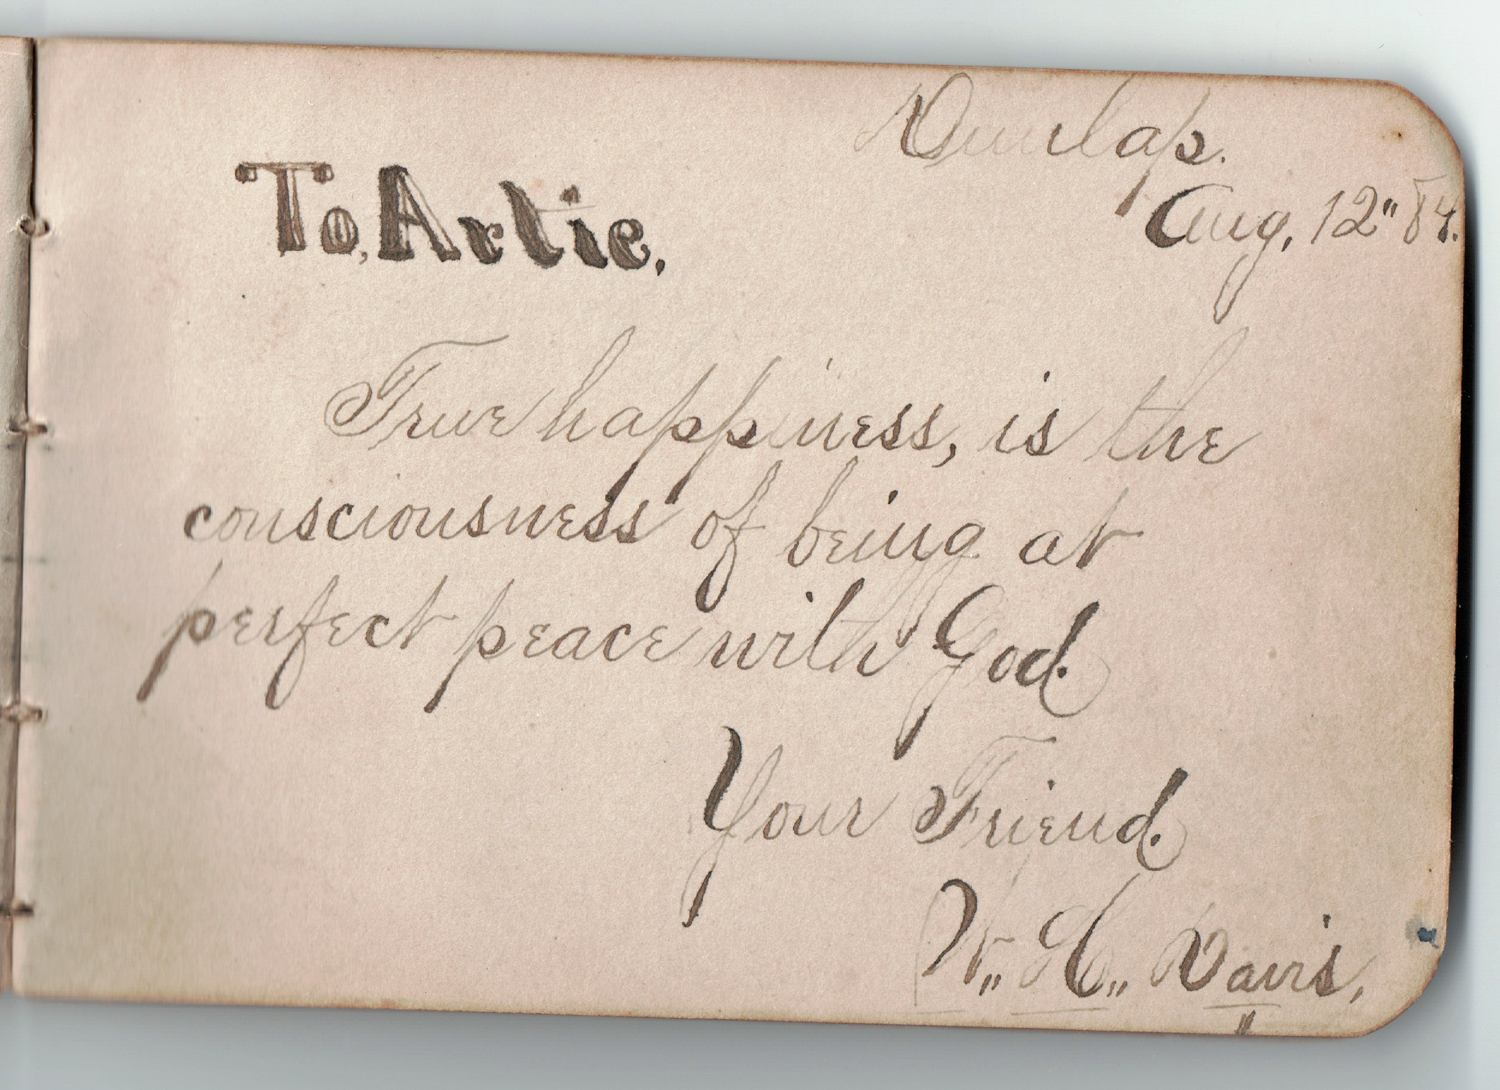 Dunlap.
Aug, 12" 84.
To, Artie.
True happiness, is the
consciousness of being at
perfect peace with God.
Your Friend.
W,, H,, Davis,